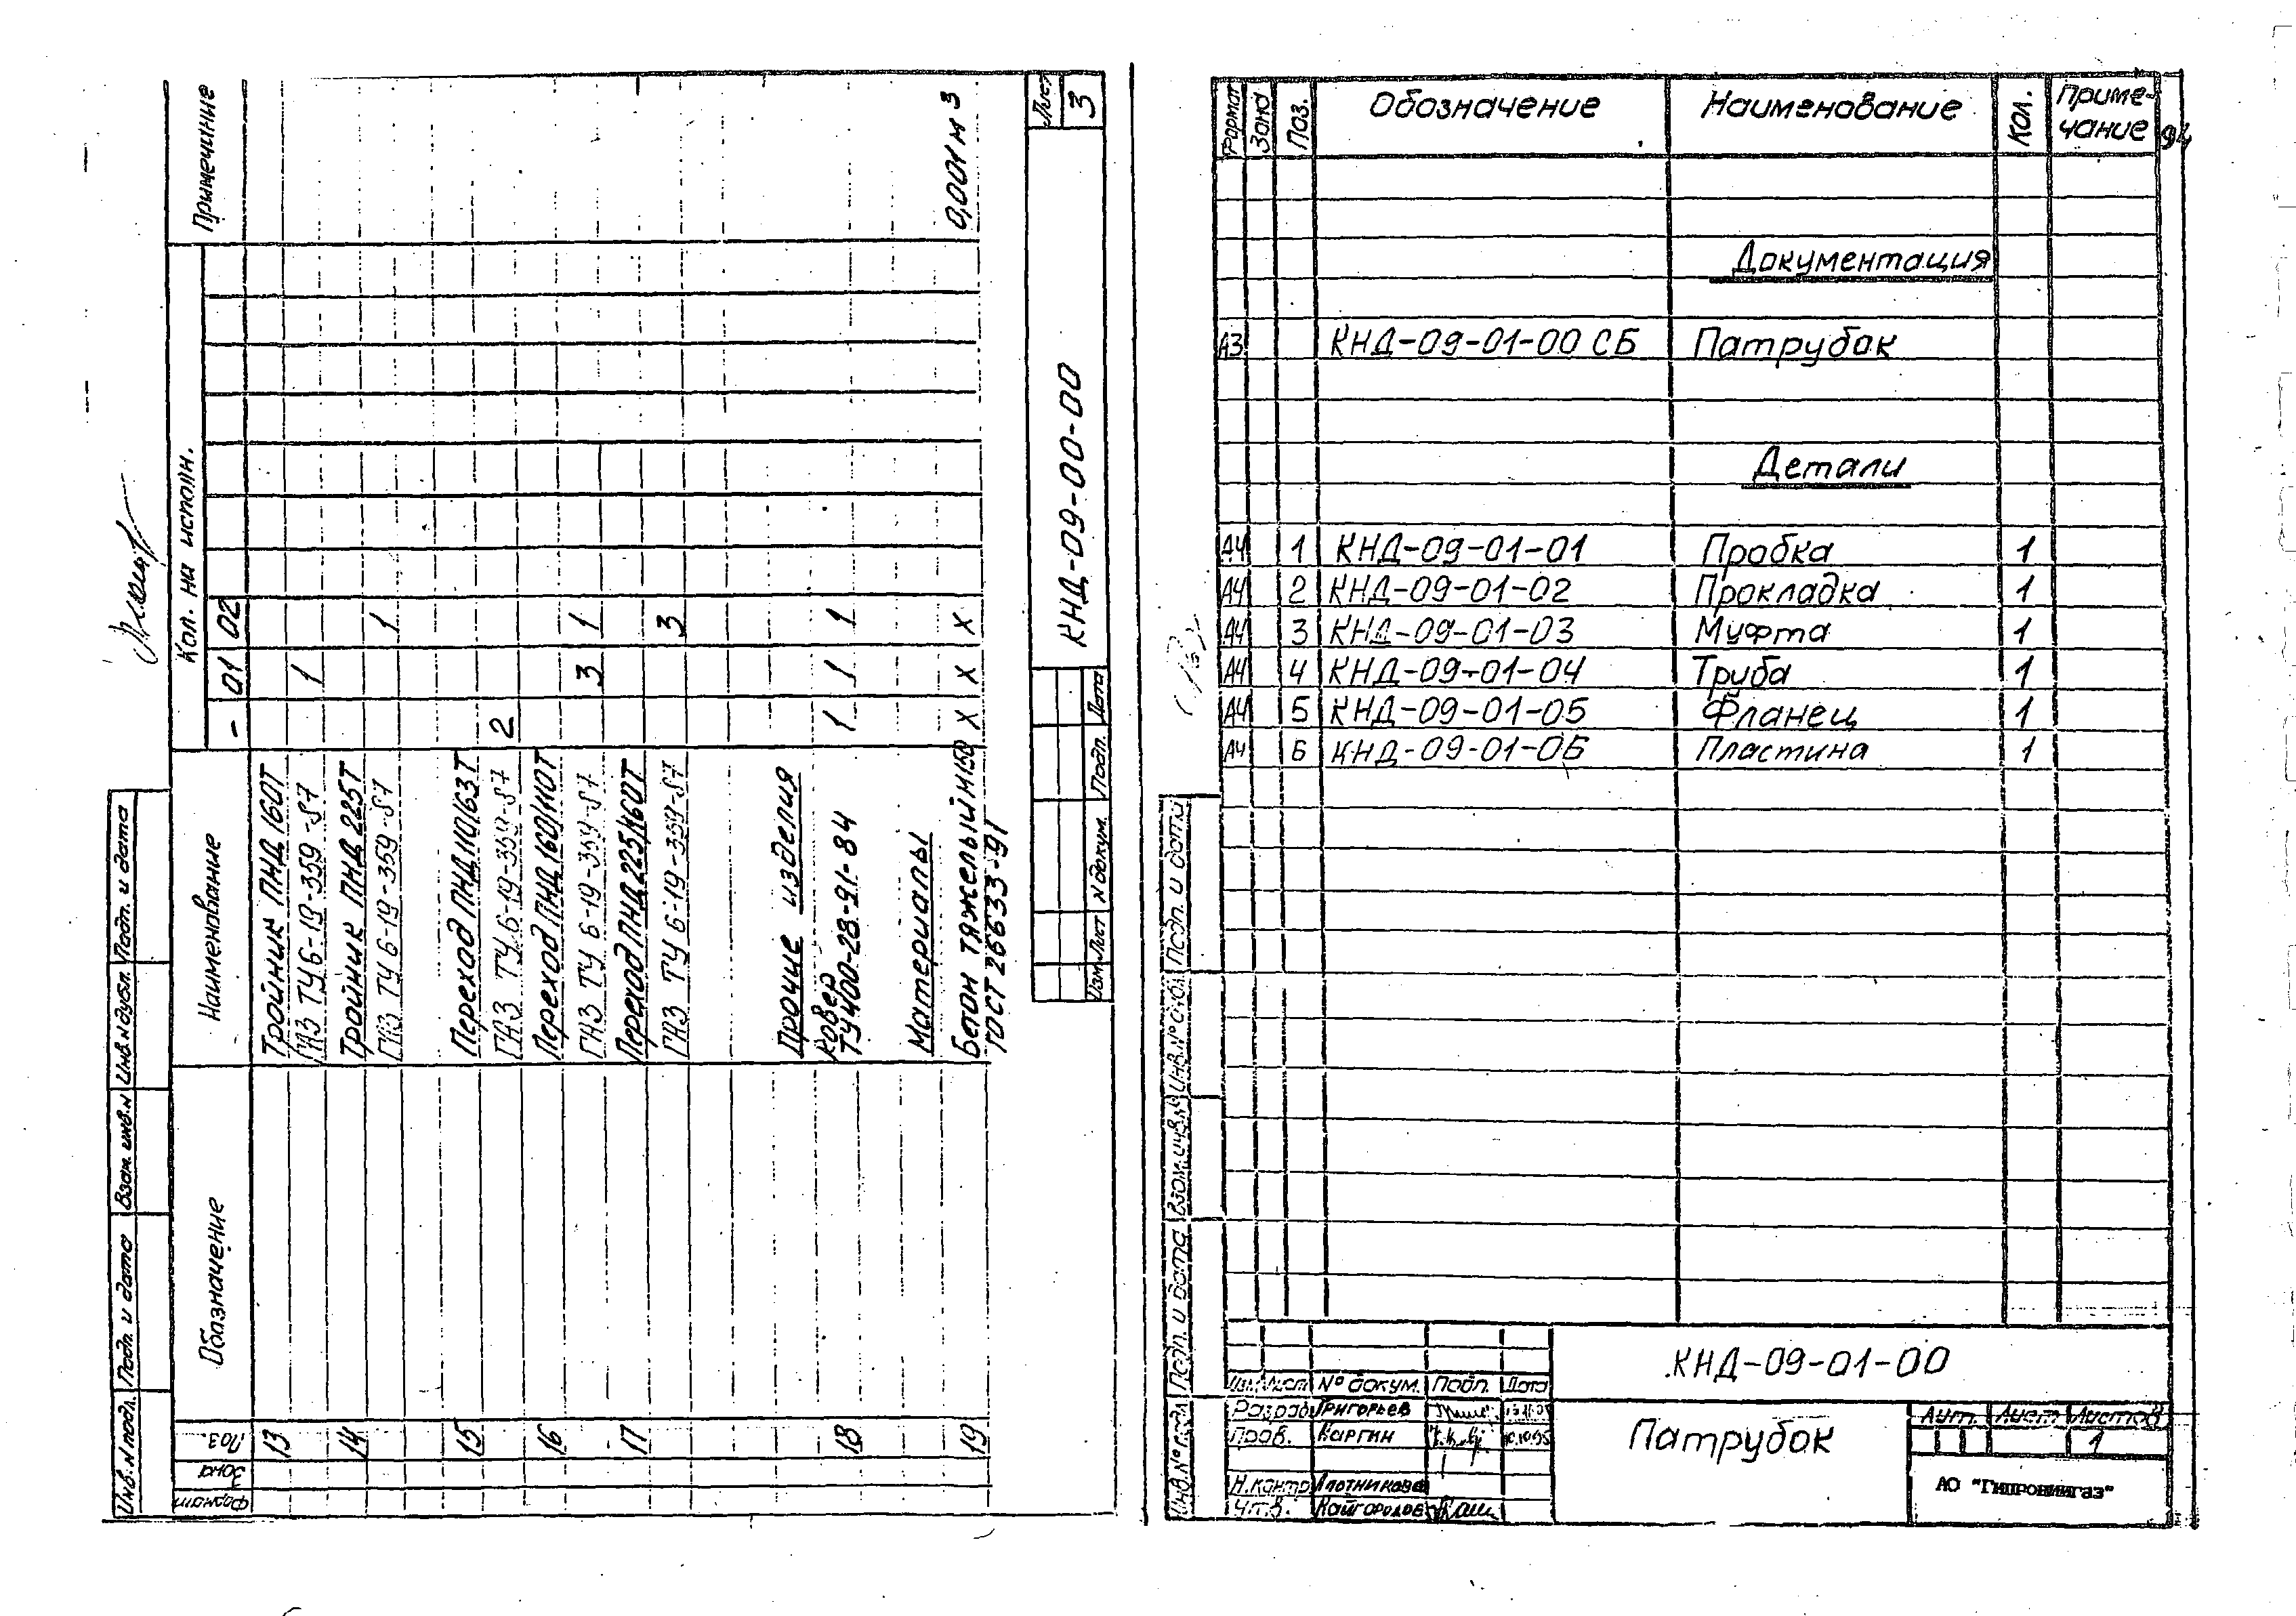 Формат Зона Поз. Обозначение Наименование Кол. на исполн. Примечание
- 01 02
13 Тройник ПНД 160Т
ГАЗ ТУ6-19-359-87 1
14 Тройник ПНД 225Т
ГАЗ ТУ6-19-359-87 1
15 Переход ПНД 110/63Т
ГАЗ ТУ6-19-359-87 2
16 Переход ПНД 160/110Т
ГАЗ ТУ6-19-359-87 3 1
17 Переход ПНД 225/160Т
ГАЗ ТУ6-19-359-87 3
Прочие изделия
18 Ковер
ТУ400-28-91-84 1 1 1
Материалы
19 Бетон тяжелый М150 Х Х Х 0,001 м 3
ГОСТ 26633-91
Инв. N подл. Подп. и дата Взам. инв. N Инв. N дубл. Подп. и дата
Изм. Лист N докум. Подп. Дата
КНД-09-00-00
Лист
3
Формат Зона Поз. Обозначение Наименование Кол. Приме-
чание
94
Документация
А3 КНД-09-01-00 СБ Патрубок
Детали
А4 1 КНД-09-01-01 Пробка 1
А4 2 КНД-09-01-02 Прокладка 1
А4 3 КНД-09-01-03 Муфта 1
А4 4 КНД-09-01-04 Труба 1
А4 5 КНД-09-01-05 Фланец 1
А4 6 КНД-09-01-06 Пластина 1
Инв. № подл. Подп. и дата Взам. инв. № Инв. № дубл. Подп. и дата
КНД-09-01-00
Изм. Лист № докум. Подп. Дата
Разраб. Григорьев
Пров. Каргин 10.10.95
Н.контр. Плотникова
Утв. Кайгородов
Патрубок
Лит. Лист Листов
1
АО "Гипрониигаз"